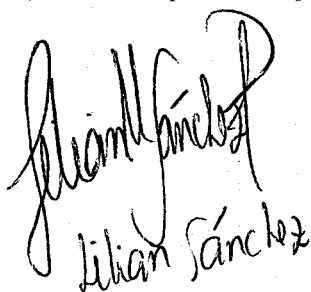 Lilian M Sánchez P
Lilian Sánchez